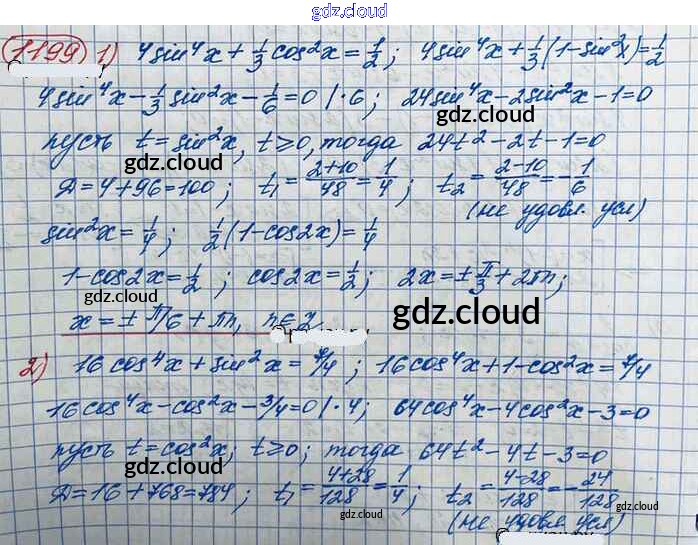 gdz.cloud
1199 1) 4sin⁴x + 1/3 cos²x = 1/2; 4sin⁴x + 1/3(1-sin²x) = 1/2
4sin⁴x - 1/3 sin²x - 1/6 = 0 |·6; 24sin⁴x - 2sin²x - 1 = 0
пусть t = sin²x, t ≥ 0, тогда 24t² - 2t - 1 = 0
gdz.cloud gdz.cloud
Д = 4 + 96 = 100; t₁ = (2+10)/48 = 1/4; t₂ = (2-10)/48 = -1/6
(не удовл. усл)
sin²x = 1/4; 1/2(1-cos2x) = 1/4
1 - cos2x = 1/2; cos2x = 1/2; 2x = ± π/3 + 2πn;
gdz.cloud gdz.cloud
x = ± π/6 + πn, n ∈ Z
2) 16cos⁴x + sin²x = 7/4; 16cos⁴x + 1 - cos²x = 7/4
16cos⁴x - cos²x - 3/4 = 0 |·4; 64cos⁴x - 4cos²x - 3 = 0
пусть t = cos²x; t ≥ 0; тогда 64t² - 4t - 3 = 0
gdz.cloud gdz.cloud
Д = 16 + 768 = 784; t₁ = (4+28)/128 = 1/4; t₂ = (4-28)/128 = -24/128
gdz.cloud gdz.cloud
(не удовл. усл)